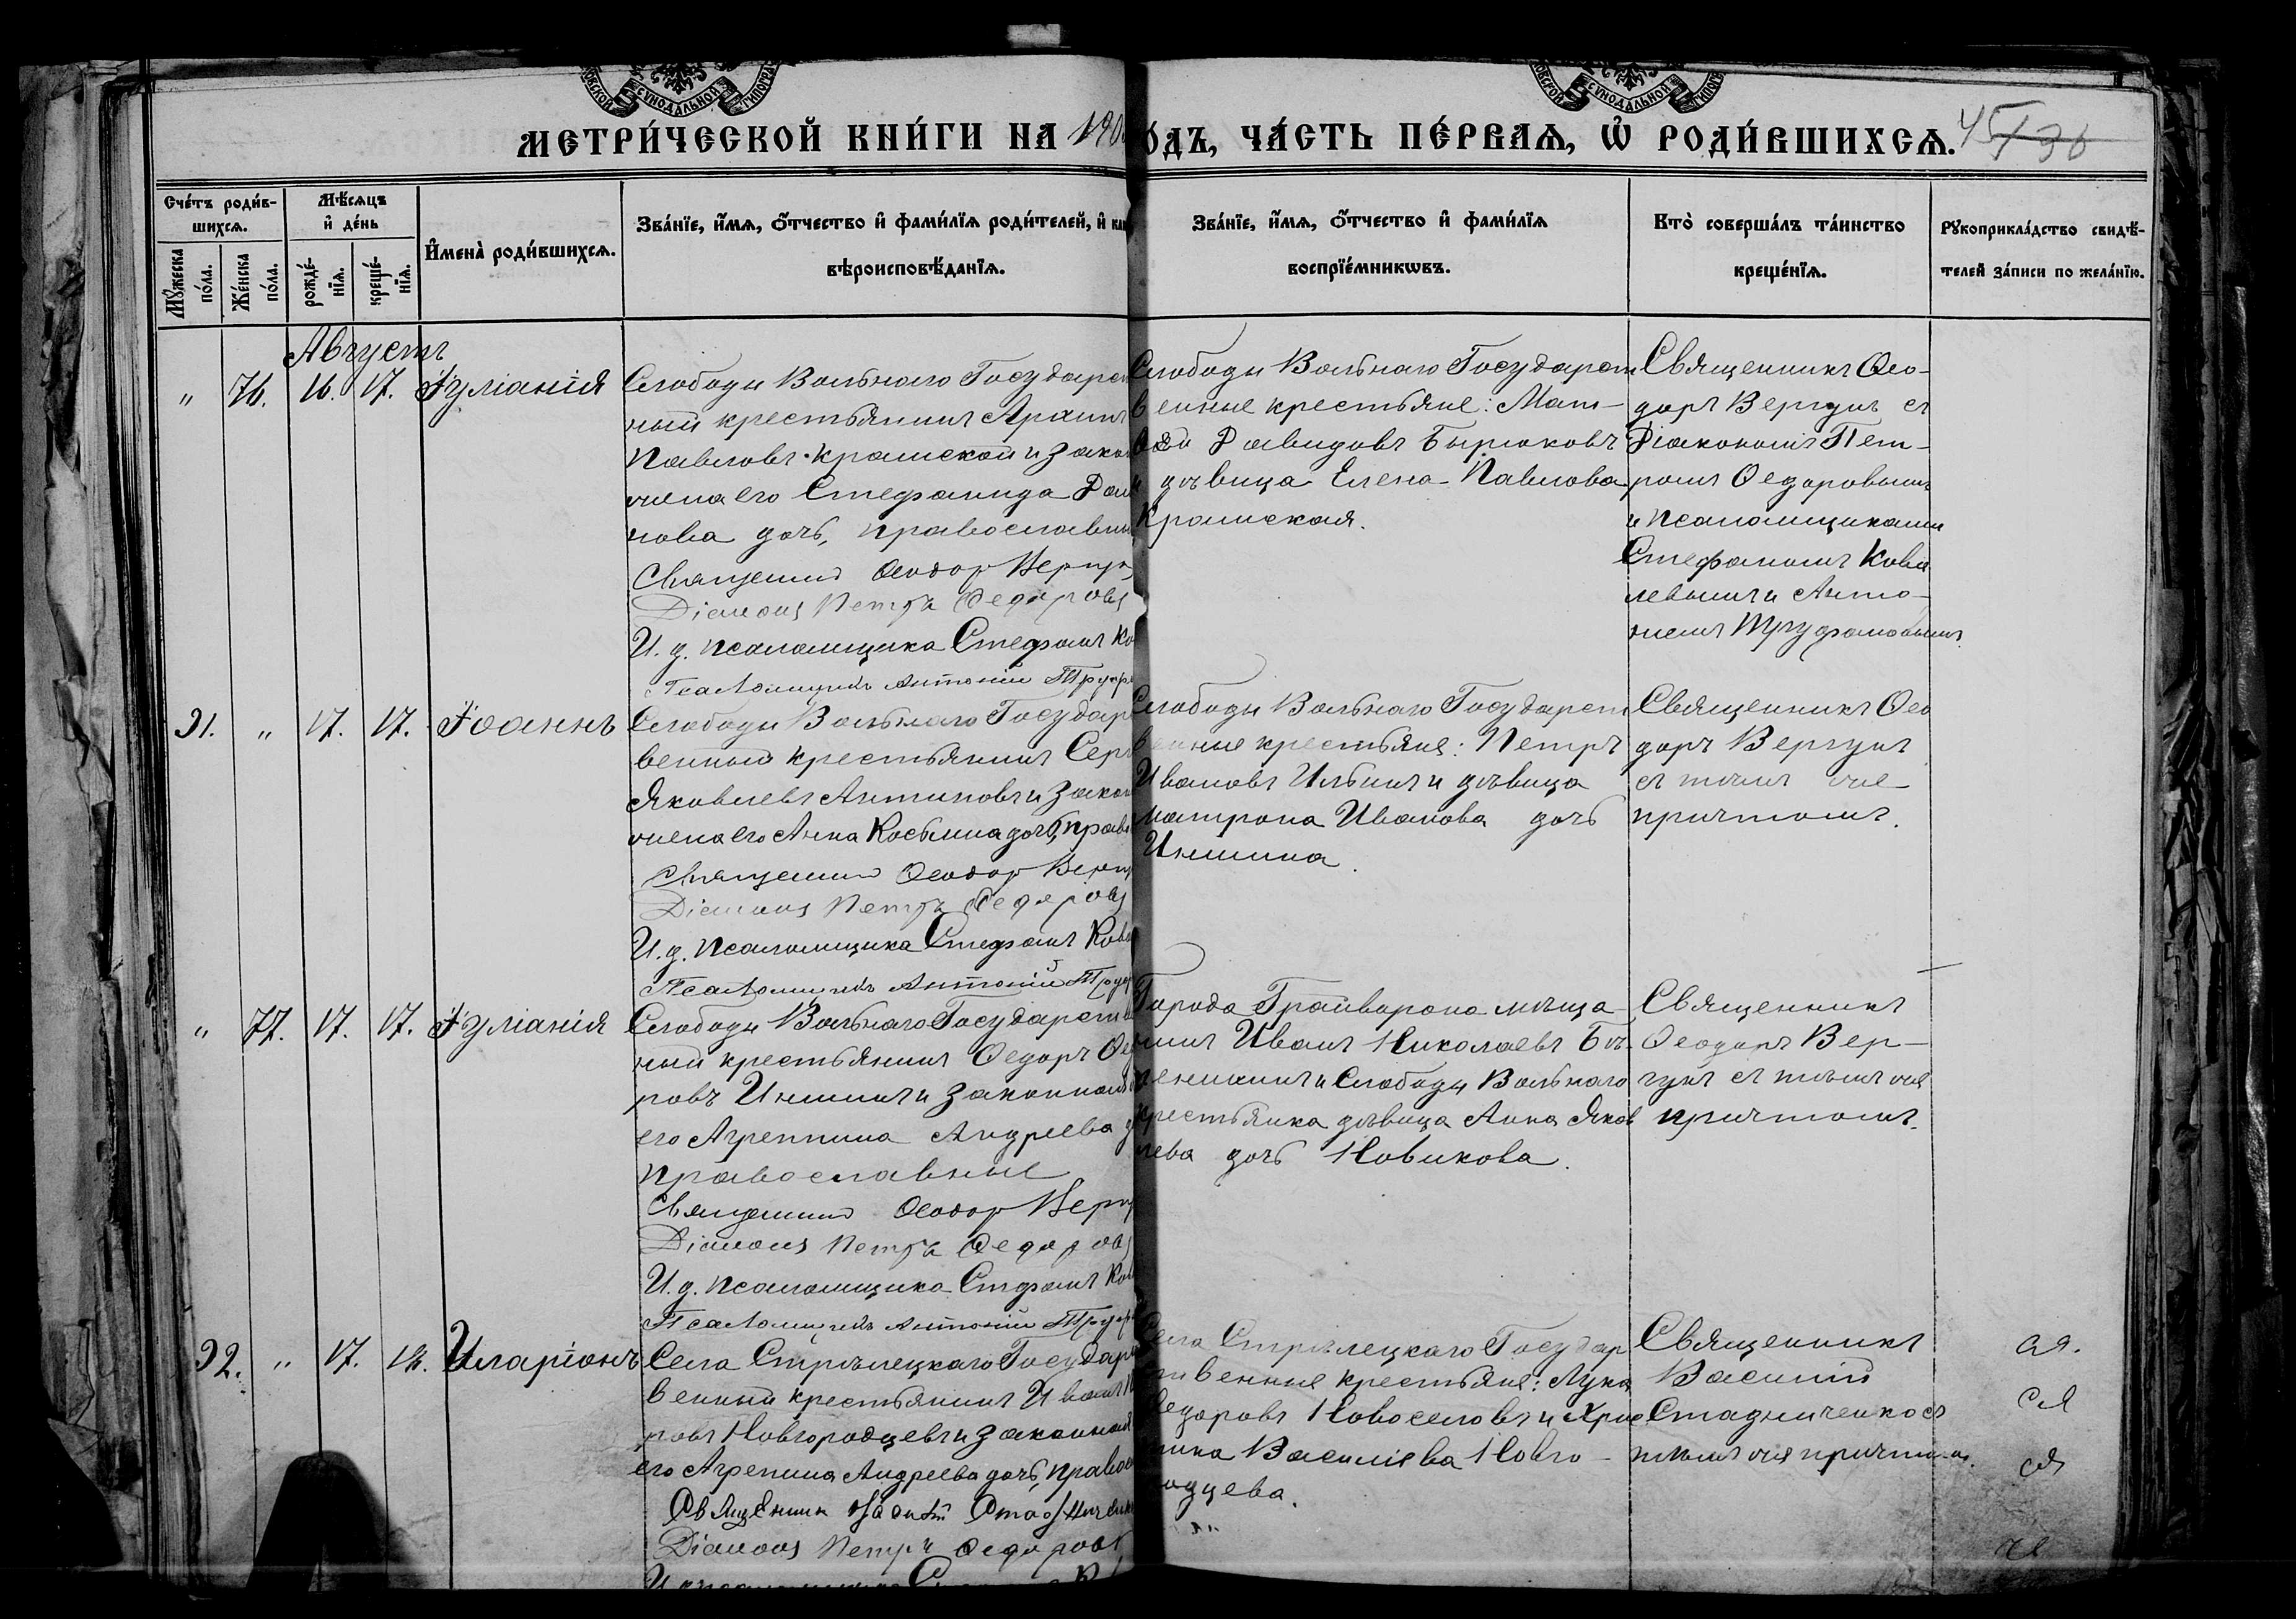 МЕТРИ́ЧЕСКОЙ КНИ́ГИ НА 190
ОДЪ, ЧА́СТЬ ПЕ́РВАЯ, Ѿ РОДИ́ВШИХСЯ.
45
Сче́тъ роди́в-
шихся.
Мѣ́сяцъ
и҆ де́нь
Мꙋ́жеска
по́ла.
Же́нска
по́ла.
рожде́-
нїя.
креще́-
нїя.
И҆мена̀ роди́вшихся.
Зва́нїе, и҆́мя, ѻ҆́тчество и҆ фами́лїя роди́телей, и҆ ка
вѣроисповѣ́данїя.
Зва́нїе, и҆́мя, ѻ҆́тчество и҆ фами́лїя
воспрїе́мникѡвъ.
Кто̀ соверша́лъ та́инство
креще́нїя.
Рꙋкоприкла́дство свидѣ́-
телей за́писи по жела́нїю.
Августъ
" 76. 16. 17. Іуліанія
Слободы Вольнаго Государст
ный крестьянинъ
Павловъ Крамской и зако
жена его Стефанида
нова дочь, православны
Священник Феодор Вергун
Діаконъ Петръ Федоровъ
И. д. псаломщика Стефанъ Ко
Псаломщикъ Антоній Труф
Слободы Вольнаго Государст
венные крестьяне: Мат-
Давидовъ Бирюковъ
и дѣвица Елена Павлова
Крамская.
Священникъ Ѳео-
доръ Вергунъ съ
Діакономъ Пет-
ромъ Ѳедоровымъ
и псаломщиками
Стефаномъ Кова
левымъ и Анто-
ніемъ Труфановымъ.
91. " 17. 17. Іоаннъ
Слободы Вольнаго Государ
венный крестьянинъ Сер
Яковлевъ Антиповъ и закон
жена его Анна Косьмина дочь, прав
Священник Феодор Вергун
Діаконъ Петръ Федоровъ
И. д. псаломщика Стефанъ Кова
Псаломщикъ Антоній Труф
Слободы Вольнаго Государст
венные крестьяне: Петръ
Ивановъ Ильинъ и дѣвица
Матрона Иванова дочь
Иншина.
Священникъ Ѳео
доръ Вергунъ
съ тѣмъ же
причтомъ.
" 77. 17. 17. Іуліанія
Слободы Вольнаго Государств
ный крестьянинъ Ѳедоръ Ѳе
ровъ Иншинъ и законная
его Агреппина Андреева д
православные
Священник Феодор Вергун
Діаконъ Петръ Федоровъ
И. д. псаломщика Стефанъ Ков
Псаломщикъ Антоній Труф
Города Грайворона мѣща-
нинъ Иванъ Николаевъ
и слободы Вольнаго
крестьянка дѣвица Анна Яков
лева дочь Новикова.
Священникъ
Ѳеодоръ Вер-
гунъ съ тѣмъ же
причтомъ.
92. " 17. 18. Иларіонъ
Села Стрѣлецкаго Государ
венный крестьянинъ Иванъ
ровъ Новгородцевъ и законная
его Агрепина Андреева дочь, правос
Священник Василій Стадниченк
Діаконъ Петръ Федоровъ
Села Стрѣлецкаго Государ
ственные крестьяне: Лука
Ѳедоровъ Новоселовъ и Хрис
тина Василіева Новго-
родцева.
Священникъ
Василій
Стадниченко съ
тѣмъ же причтомъ.
ая.
ся
ся